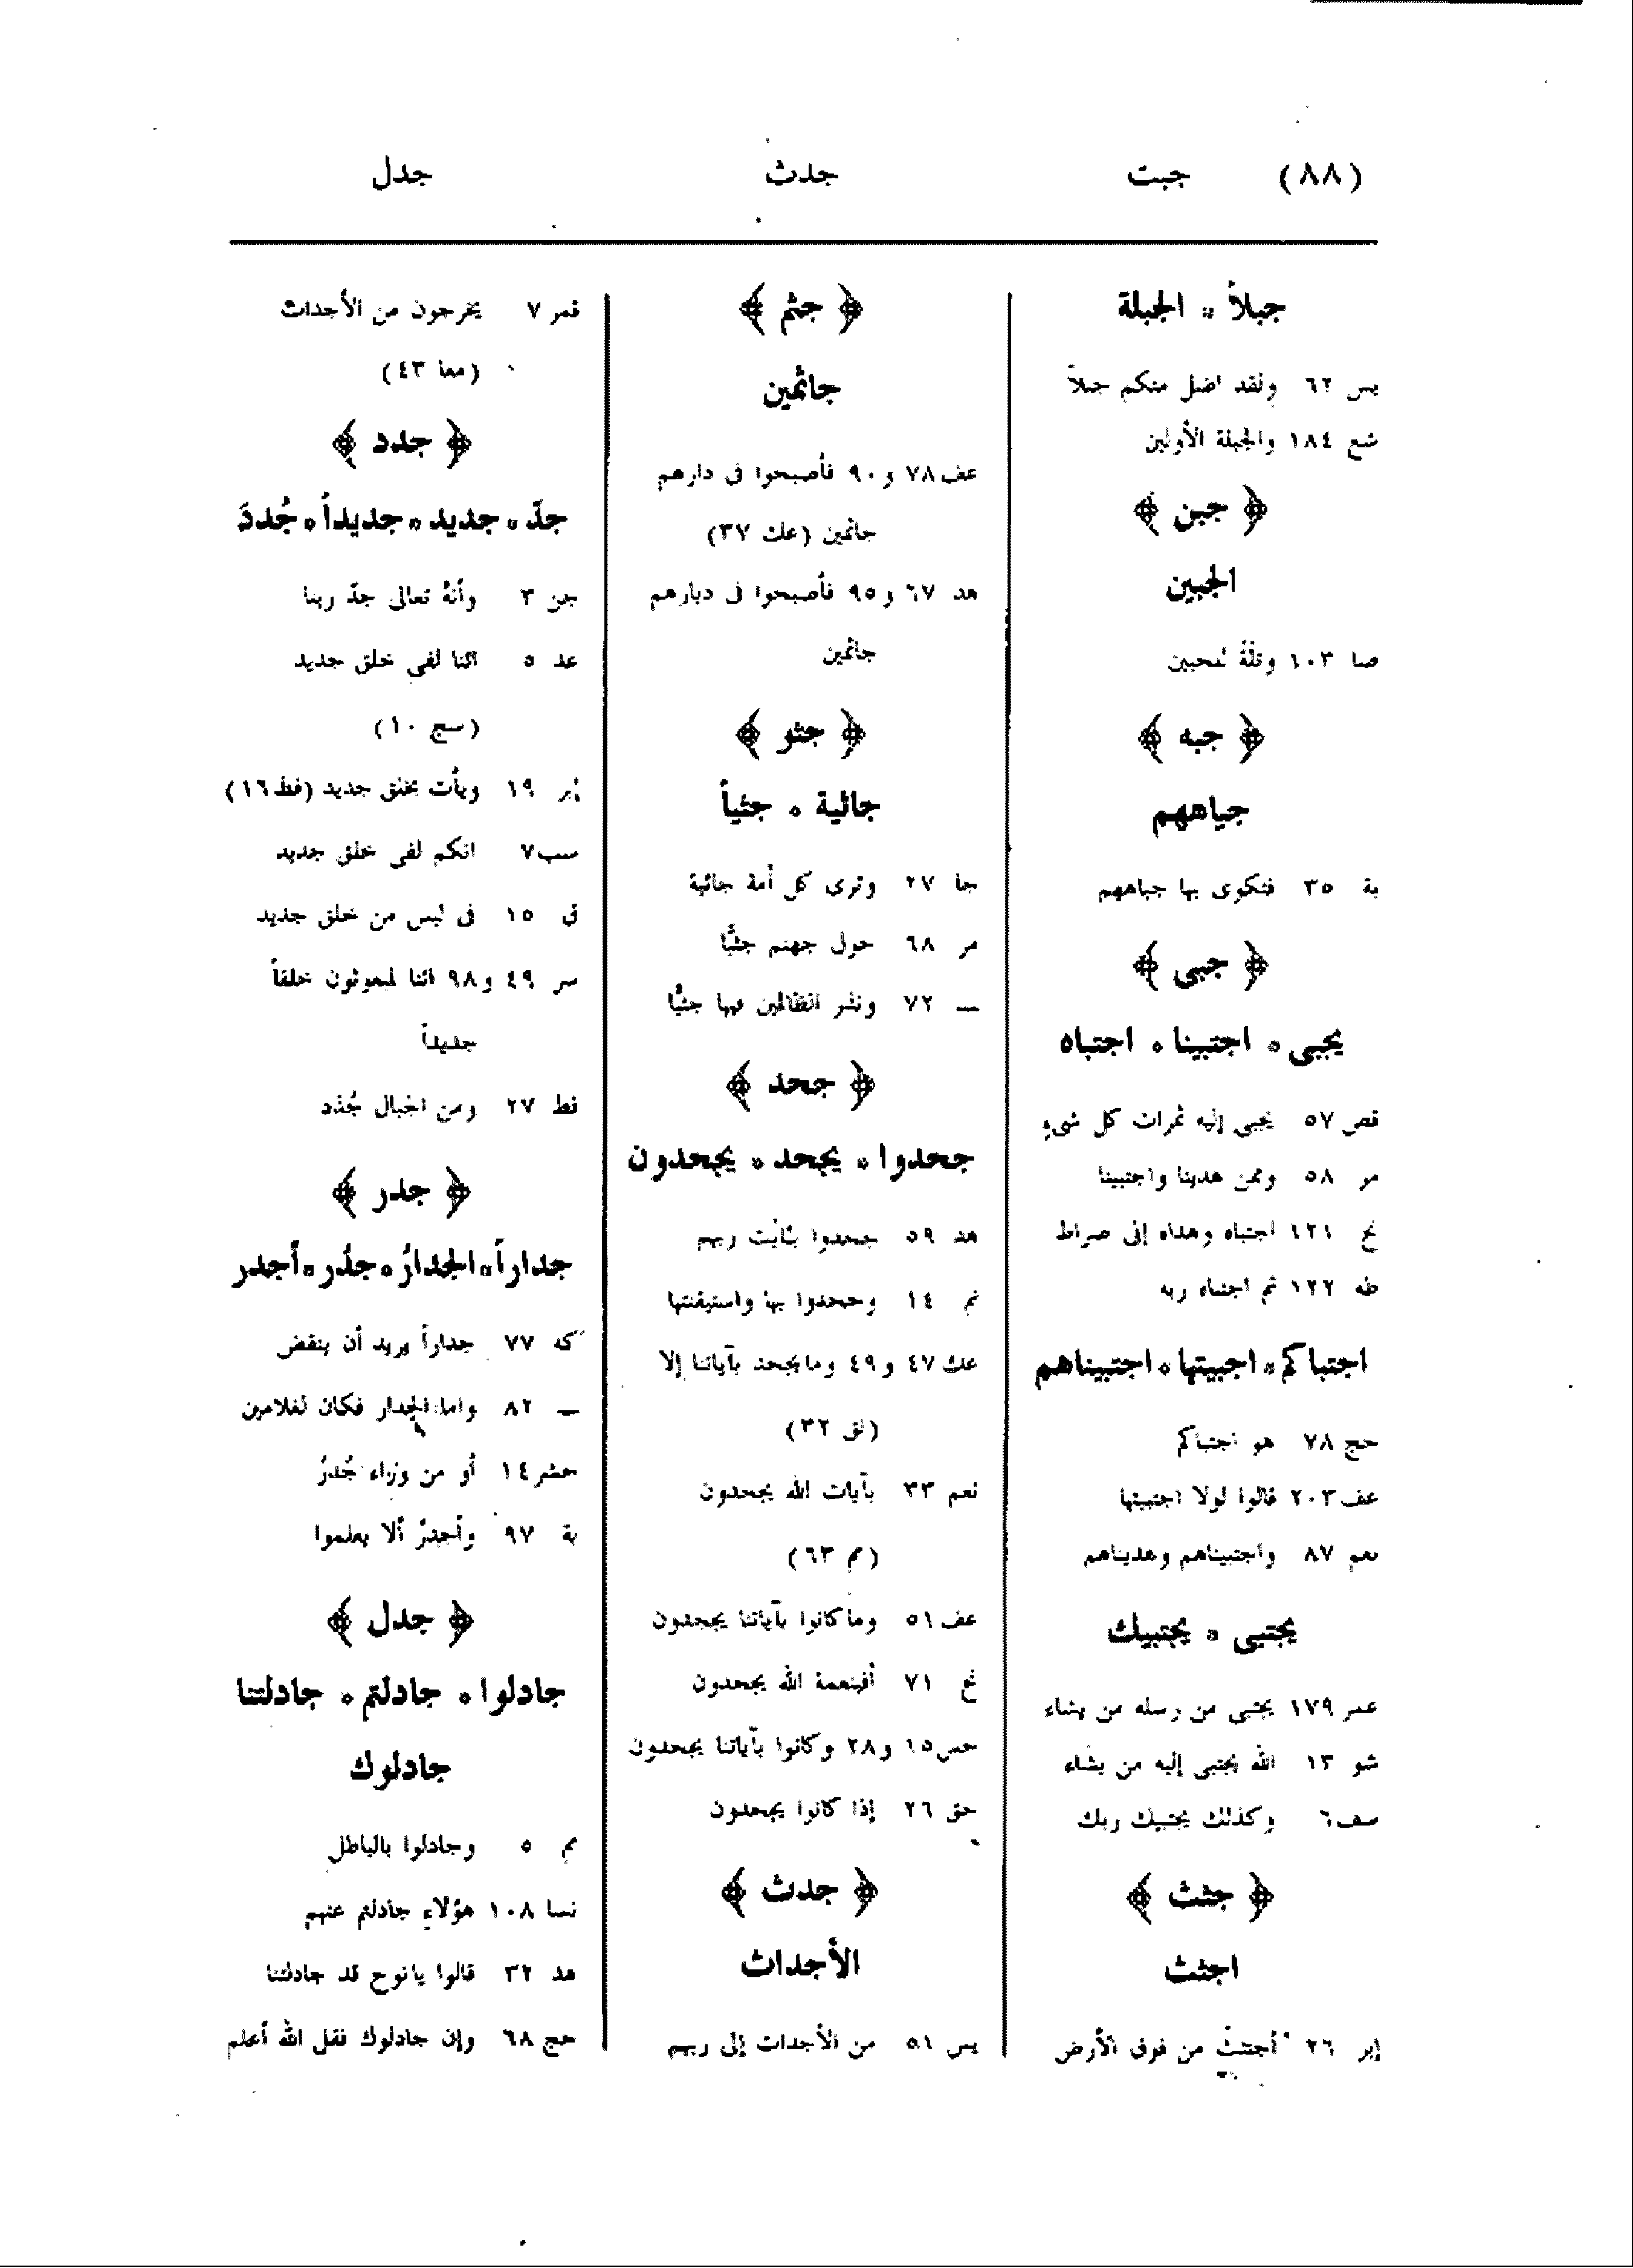 (٨٨) جبت جدث جدل
جبلاً * الجبلة
يس ٦٢ ولقد اضل منكم جبلاً
شع ١٨٤ والجبلة الأولين
﴿ جبن ﴾
الجبين
صا ١٠٣ وتلّهُ للجبين
﴿ جبه ﴾
جباههم
بة ٣٥ فتكوى بها جباههم
﴿ جبى ﴾
يجبى * اجتبينا * اجتباه
قص ٥٧ يجبى إليه ثمرات كل شىءٍ
مر ٥٨ وممن هدينا واجتبينا
نح ١٢١ اجتباه وهداه إلى صراط
طه ١٢٢ ثم اجتباه ربه
اجتباكم * اجبيتها * اجتبيناهم
حج ٧٨ هو اجتباكم
عف ٢٠٣ قالوا لولا اجتبيتها
نعم ٨٧ واجتبيناهم وهديناهم
يجتبى * يجتبيك
عمر ١٧٩ يجتبى من رسله من يشاء
شو ١٣ الله يجتبى إليه من يشاء
سف ٦ وكذلك يجتبيك ربك
﴿ جثث ﴾
اجثث
إبر ٢٦ أجتثث من فوق الأرض
﴿ جثم ﴾
جاثمين
عف ٧٨ و ٩٠ فأصبحوا فى دارهم
جاثمين (عك ٣٧)
هد ٦٧ و ٩٥ فأصبحوا فى ديارهم
جاثمين
﴿ جثو ﴾
جاثية * جثياً
جا ٢٧ وترى كل أمة جاثية
مر ٦٨ حول جهنم جثيًّا
ــ ٧٢ ونذر الظالمين فيها جثيًّا
﴿ جحد ﴾
جحدوا * يجحد * يجحدون
هد ٥٩ جحدوا بآيات ربهم
نم ١٤ وجحدوا بها واستيقنتها
عك ٤٧ و ٤٩ وما يجحد بآياتنا إلا
(لق ٣٢)
نعم ٣٣ بآيات الله يجحدون
(مم ٦٣)
عف ٥١ وما كانوا بآياتنا يجحدون
نح ٧١ أفبنعمة الله يجحدون
حس ١٥ و ٢٨ وكانوا بآياتنا يجحدون
حق ٢٦ إذا كانوا يجحدون
﴿ جدث ﴾
الأجداث
يس ٥١ من الأجداث إلى ربهم
قمر ٧ يخرجون من الأجداث
(معا ٤٣)
﴿ جدد ﴾
جدّ * جديد * جديداً * جُددَ
جن ٣ وأنهُ تعالى جدّ ربنا
عد ٥ ائنا لفى خلق جديد
(سج ١٠)
إبر ١٩ ويأت بخلق جديد (فط ١٦)
سب ٧ انكم لفى خلق جديد
ق ١٥ فى لبس من خلق جديد
سر ٤٩ و ٩٨ ائنا لمبعوثون خلقاً
جديداً
فط ٢٧ ومن الجبال جُدَد
﴿ جدر ﴾
جداراً * الجدارُ * جدُر * أجدر
كه ٧٧ جداراً يريد أن ينقض
ــ ٨٢ واما الجدار فكان لغلامين
حشر ١٤ أو من وراء جُدرُ
بة ٩٧ وأجدرُ ألا يعلموا
﴿ جدل ﴾
جادلوا * جادلتم * جادلتنا
جادلوك
مم ٥ وجادلوا بالباطل
نسا ١٠٨ هؤلاءِ جادلتم عنهم
هد ٣٢ قالوا يا نوح قد جادلتنا
حج ٦٨ وإن جادلوك فقل الله أعلم